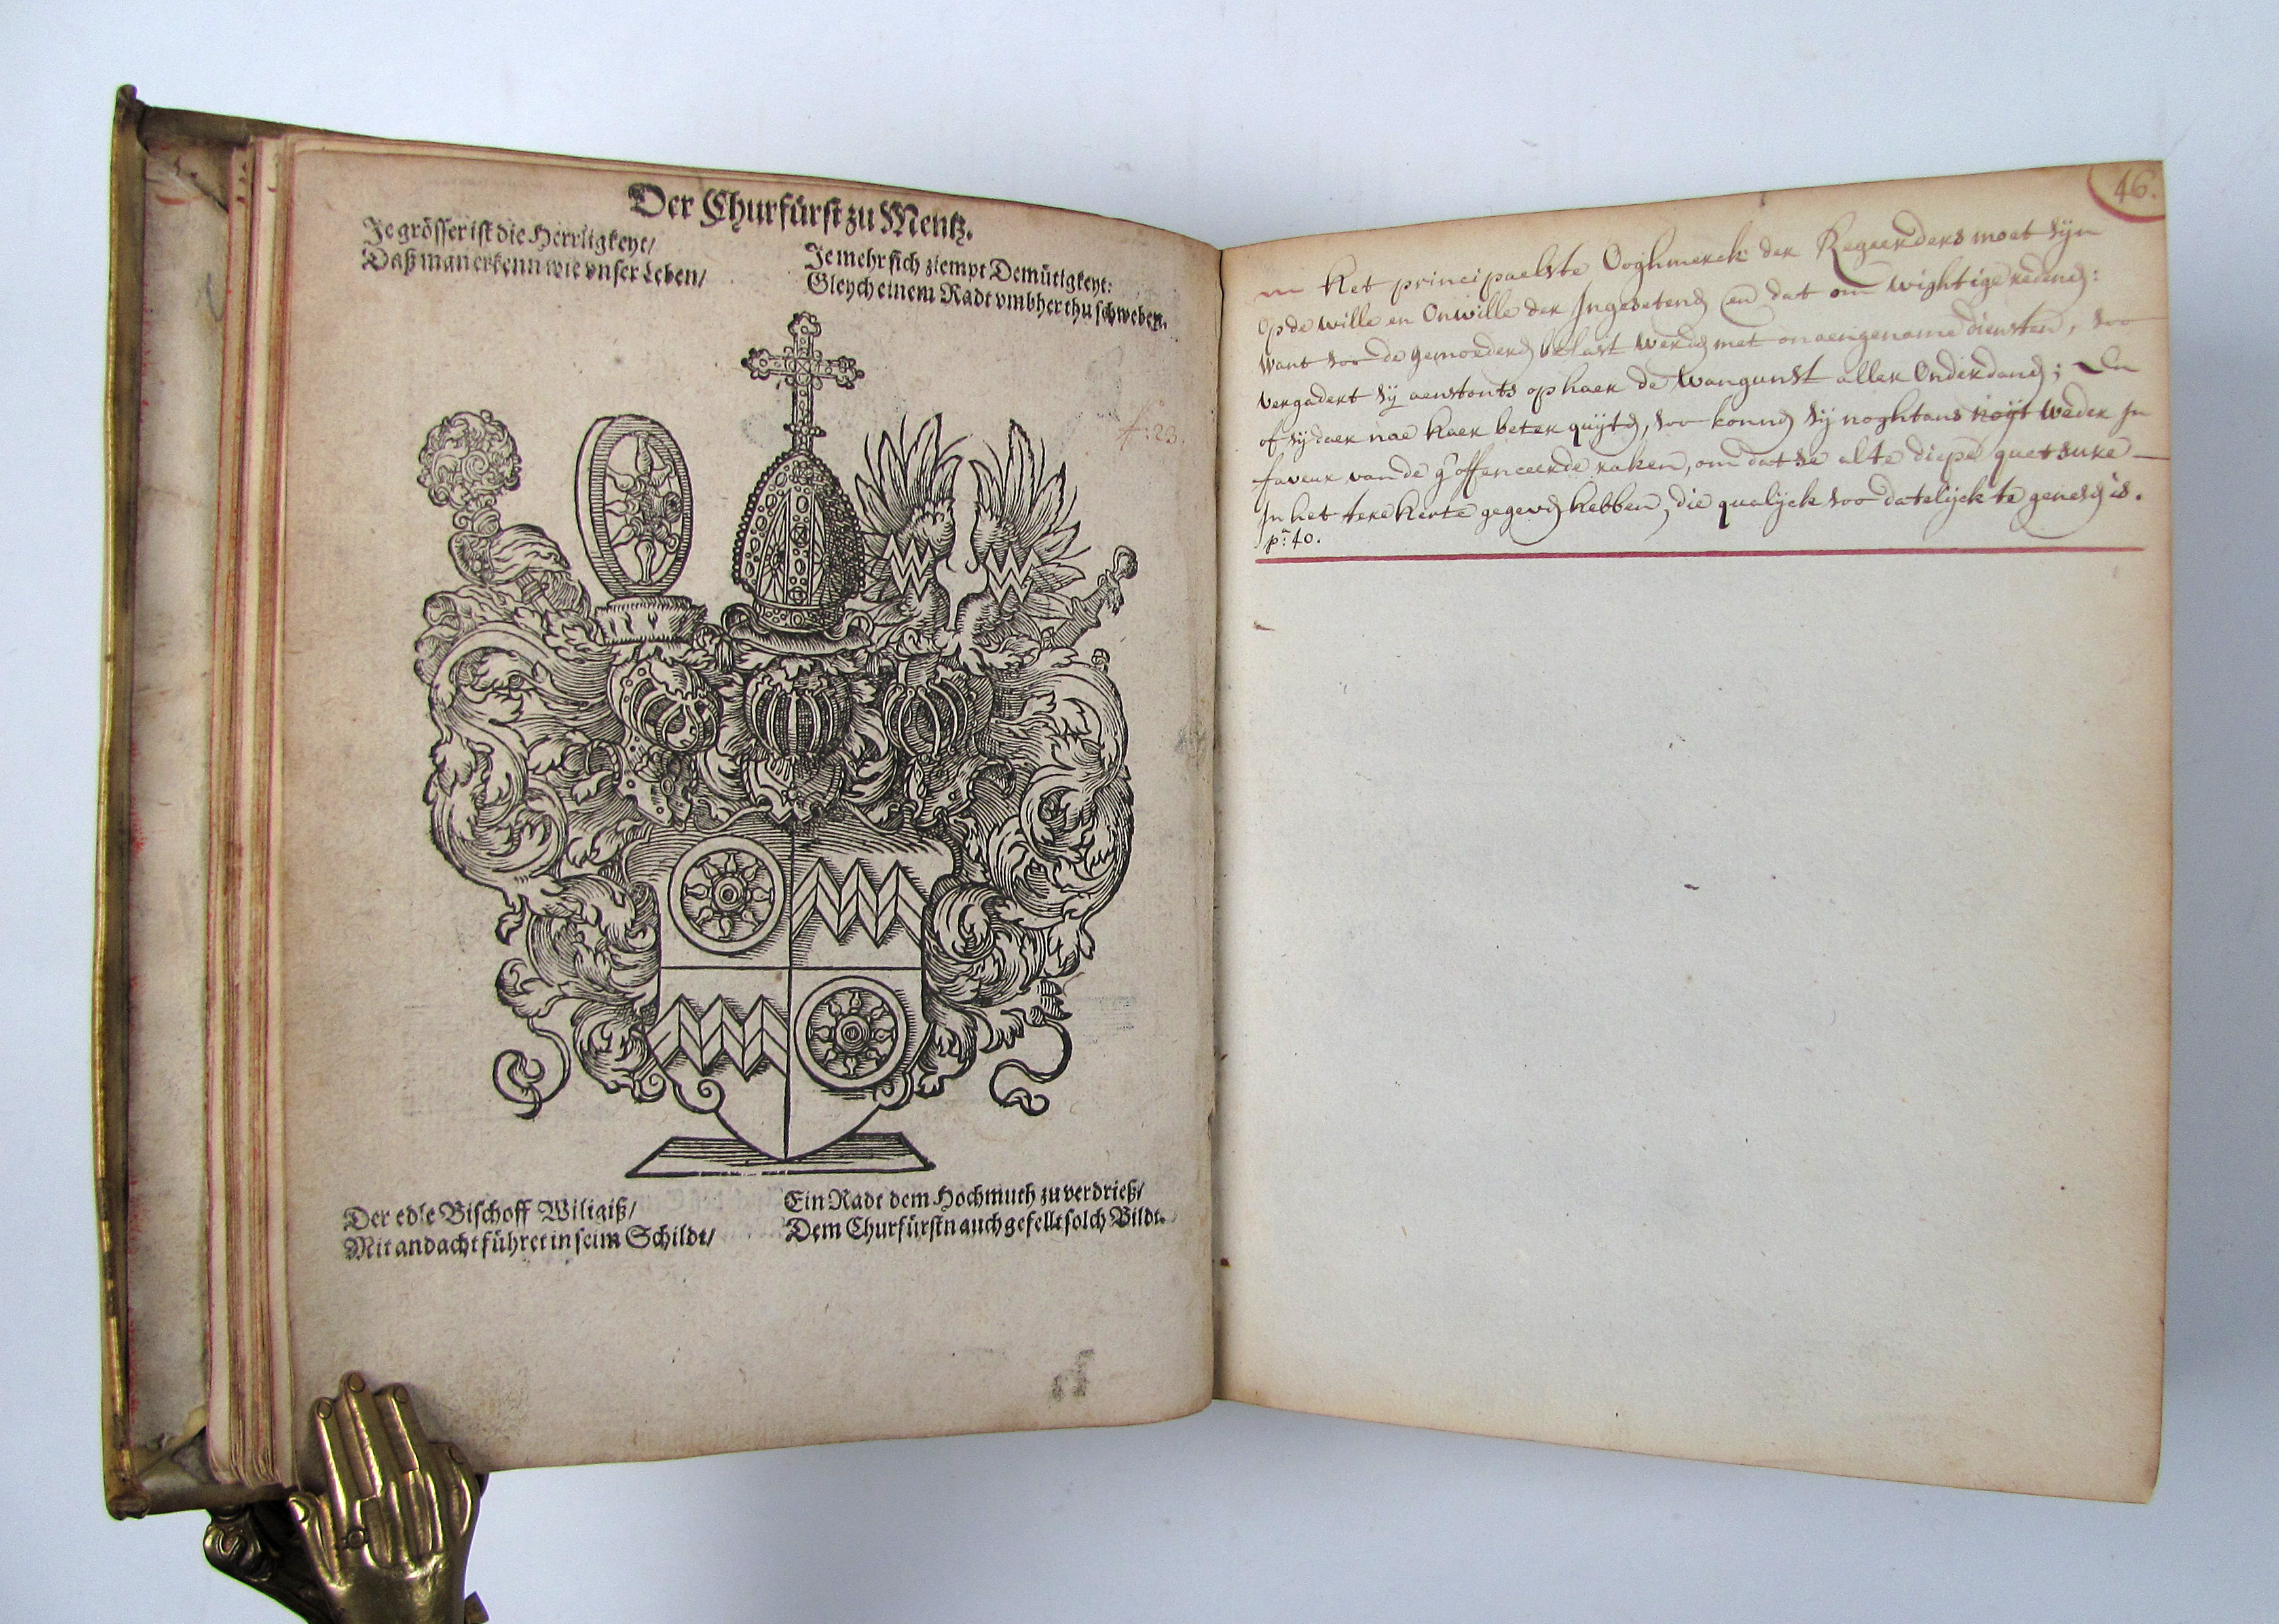 Der Churfürst zu Mentz.
Je grösser ist die Herrligkeyt/
Daß man erkenn wie vnser Leben/
Je mehr sich ziempt Demütigkeyt:
Gleych einem Radt vmbher thu schweben.
f:o 23.
Der edle Bischoff Wiligiß/
Mit andacht führet in seim Schildt/
Ein Radt dem Hochmuth zu verdrieß/
Dem Churfürstn auch gefellt solch Bildt.
46.
Het principaelste Ooghmerck der Regeerders moet sijn
Op de wille en Onwille der Ingesetenen en dat om wightige redenen:
Want soo de gemoederen belast werden met onaengename diensten, soo
vergadert sij aenstonts op haer de Wangunst aller Onderdanen; En
of sij daer nae haer beter quijten, soo konnen sij noghtans noijt weder in
faveur van de g'offenceerde raken, om dat se al te diepe quetsure
In het tere herte gegeven hebben, die qualijck soo datelijck te genesen is.
pa: 40.